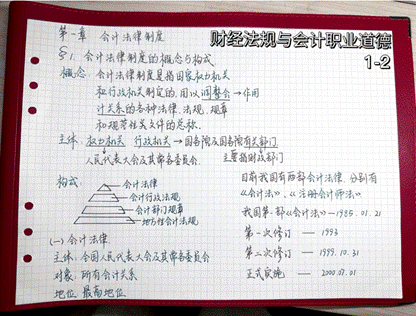 财经法规与会计职业道德
1-2
第一章 会计法律制度
§1. 会计法律制度的概念与构成
概念: 会计法律制度是指国家权力机关
和行政机关制定的, 用以调整会→作用
计关系的各种法律、法规、规章
和规范性文件的总称.
主体: 权力机关 行政机关→国务院及国务院有关部门
人民代表大会及其常务委员会. 主要指财政部门
构成:
会计法律
会计行政法规
会计部门规章
地方性会计法规
(一) 会计法律
主体: 全国人民代表大会及其常务委员会
对象: 所有会计关系
地位: 最高地位
目前我国有两部会计法律, 分别有
《会计法》、《注册会计师法》
我国第一部《会计法》—1985. 01. 21
第一次修订 — 1993
第二次修订 — 1999. 10. 31
正式实施 — 2000. 07. 01